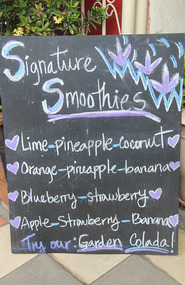 Signature
Smoothies
Lime-pineapple-coconut
Orange-pineapple-banana
Blueberry-strawberry
Apple-Strawberry-Banana
Try our: Garden Colada!